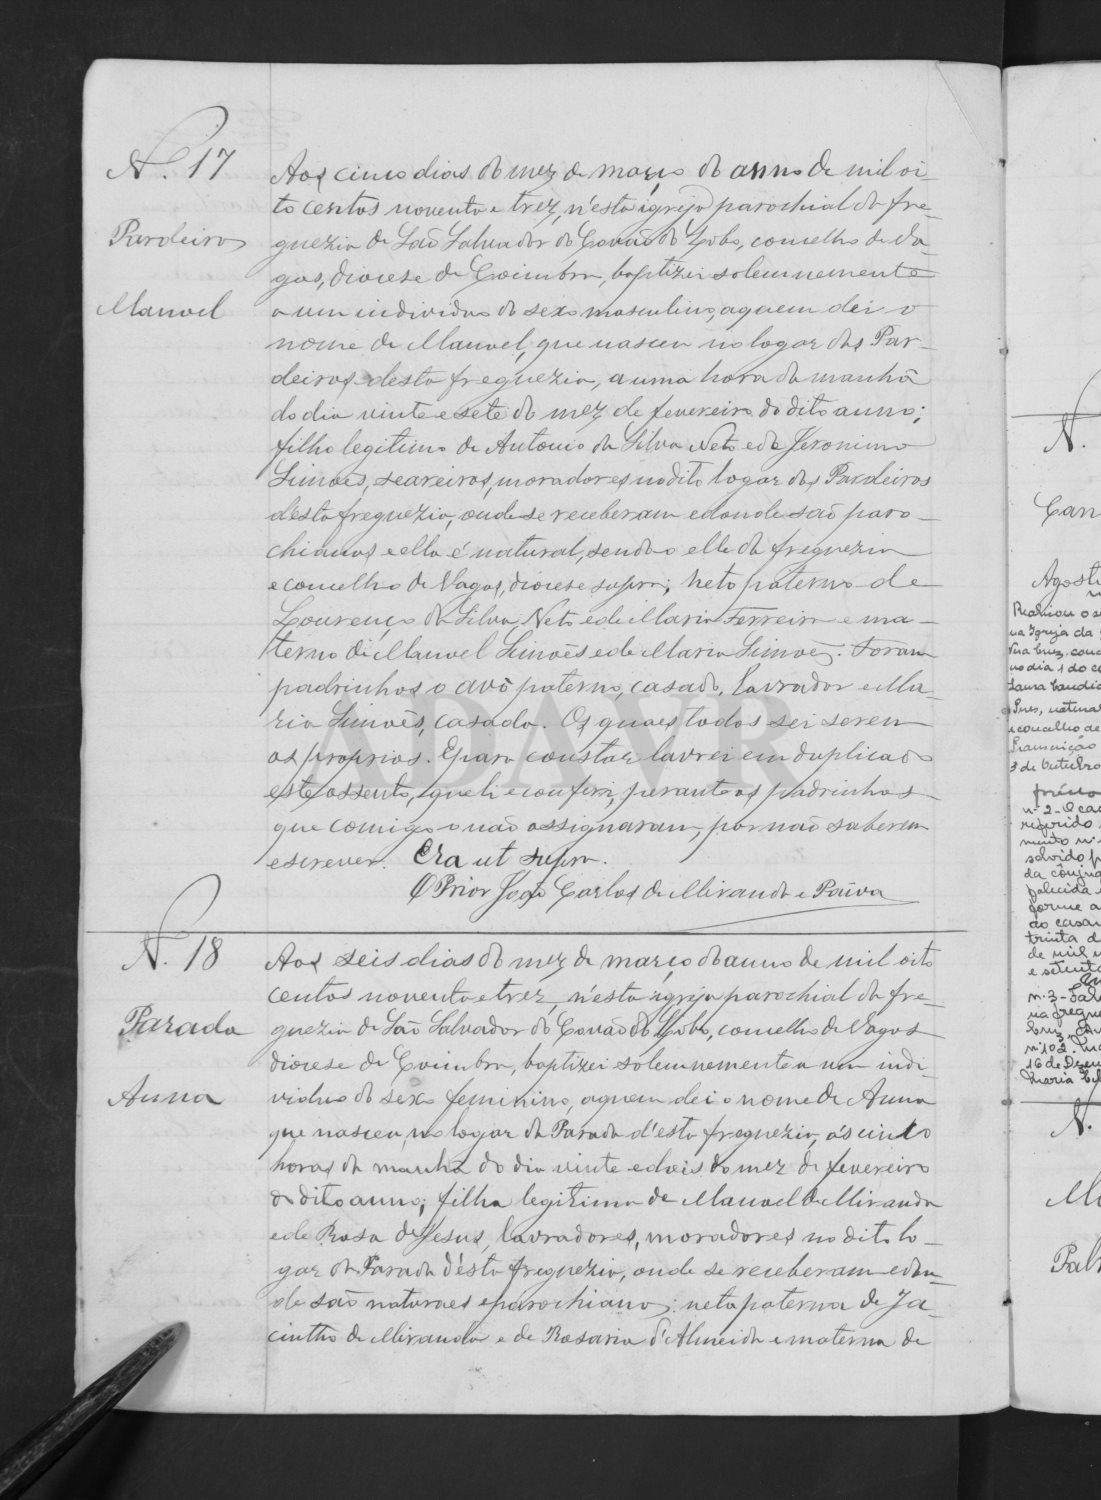 N. 17
Pardeiros
Manoel
Aos cinco dias do mez de março do anno de mil oi-
to centos noventa e trez, n'esta igreja parochial da fre-
guezia de São Salvador do Covão do Lobo, concelho de Va
gos, diocese de Coimbra, baptizei solemnemente
a um individuo do sexo masculino, a quem dei o
nome de Manoel, que nasceu no logar dos Par-
deiros desta freguezia, a uma hora da manhã
do dia vinte e sete do mez de fevereiro do dito anno;
filho legitimo de Antonio da Silva Neto e de Jeronima
Simões, seareiros, moradores no dito logar dos Pardeiros
d'esta freguezia, onde se receberam e donde são paro-
chianos e ella é natural, sendo elle da freguezia
e concelho de Vagos, diocese supra; neto paterno de
Lourenço da Silva Neto e de Maria Ferreira e ma-
terno de Manoel Simões e de Maria Simões. Foram
padrinhos o avô paterno, casado, lavrador e Ma-
ria Simões, casada. Os quaes todos sei serem
os proprios. E para constar lavrei em duplicado
este assento, que li e conferi, perante os padrinhos
que comigo o não assignaram, por não saberem
escrever. Era ut supra.
O Prior João Carlos de Miranda e Paiva
N. 18
Parada
Anna
Aos seis dias do mez de março do anno de mil oito
centos noventa e trez, n'esta igreja parochial da fre-
guezia de São Salvador do Covão do Lobo, concelho de Vagos
diocese de Coimbra, baptizei solemnemente a um indi-
viduo do sexo feminino, a quem dei o nome de Anna
que nasceu no logar da Parada d'esta freguezia, ás cinco
horas da manhã do dia vinte e dois do mez de fevereiro
do dito anno; filha legitima de Manoel de Miranda
e de Rosa de Jesus, lavradores, moradores no dito lo-
gar da Parada d'esta freguezia, onde se receberam e don-
de são naturaes e parochianos; neta paterna de Ja-
cintho de Miranda e de Rosaria d'Almeida e materna de
ADAVR
N.
Can
Agost
na Igreja da
no dia 1 do
concelho de
3 de Outubro
n. 2 - O cas
referido
da cônjug
falecida
forme a
do casa
trinta d
de mil n
e setenta
n. 3 -
na fregue
n. 102.
16 de Dezem
Maria
N.